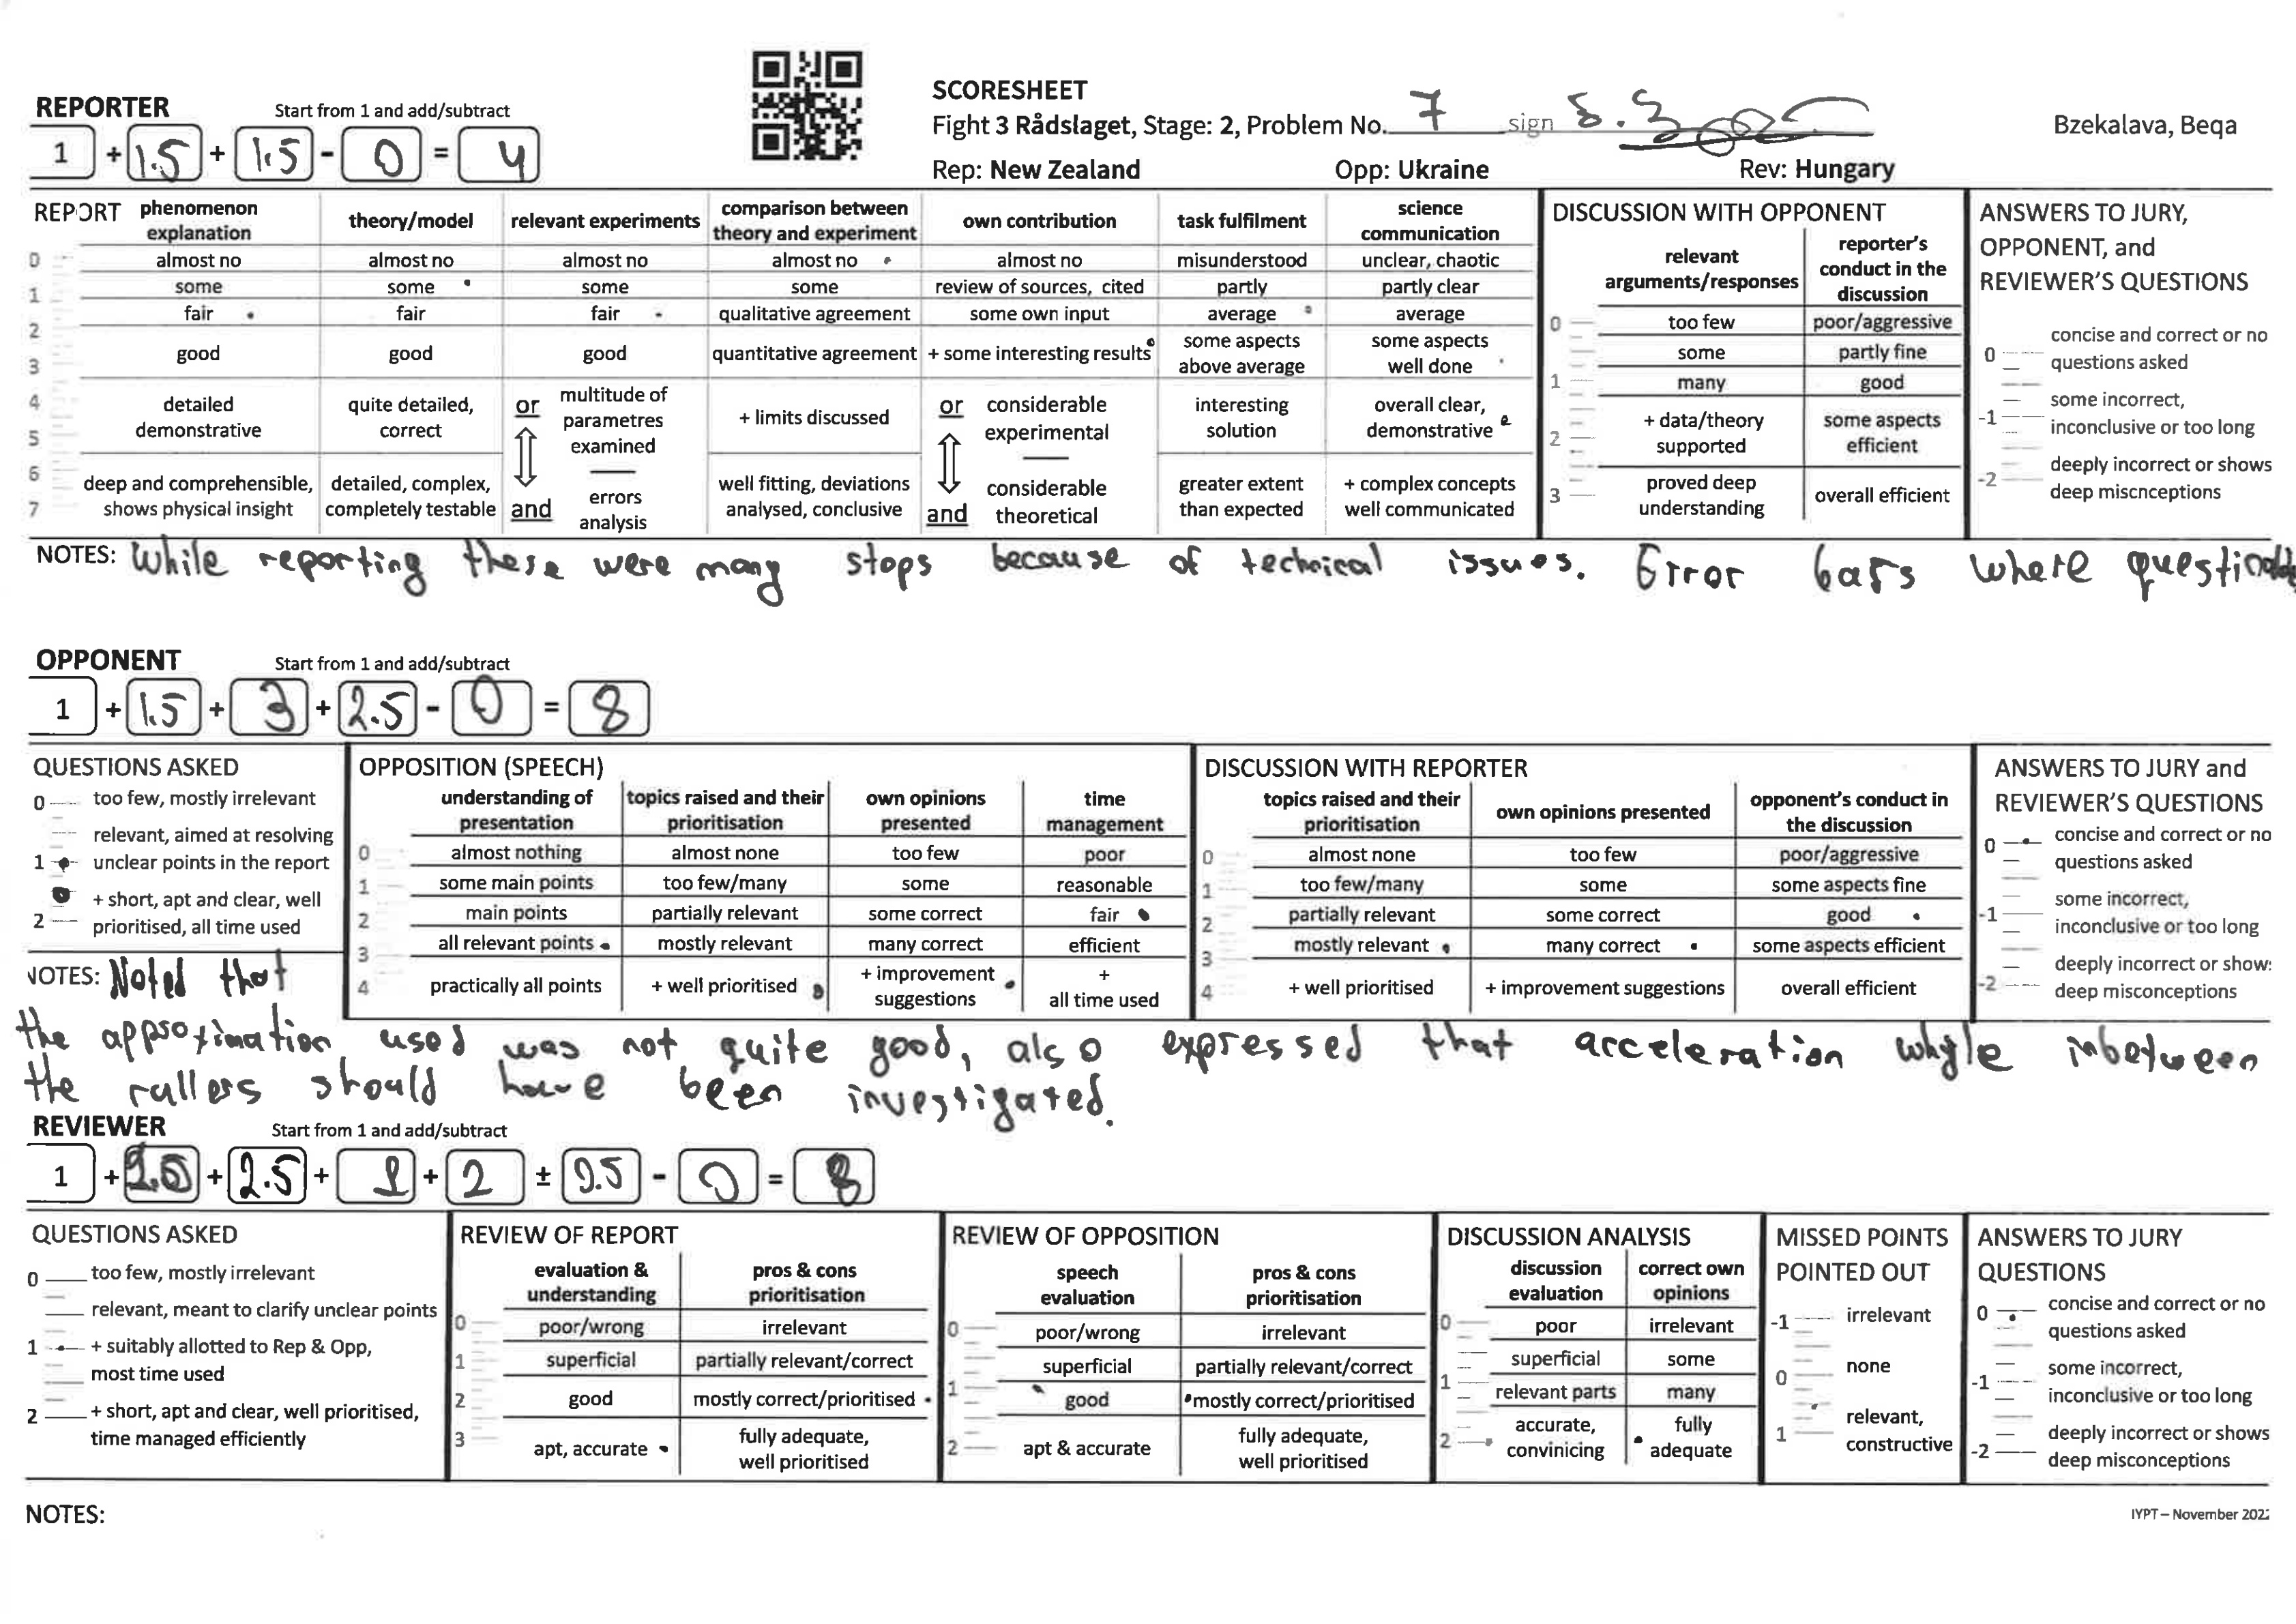 SCORESHEET
Fight 3 Rådslaget, Stage: 2, Problem No. 7 sign
Bzekalava, Beqa
Rep: New Zealand Opp: Ukraine Rev: Hungary
REPORTER Start from 1 and add/subtract
1 + 1.5 + 1.5 - 0 = 4
REPORT
phenomenon explanation
theory/model
relevant experiments
comparison between theory and experiment
own contribution
task fulfilment
science communication
0 almost no almost no almost no almost no almost no misunderstood unclear, chaotic
1 some some some some review of sources, cited partly partly clear
2 fair fair fair qualitative agreement some own input average average
3 good good good quantitative agreement + some interesting results some aspects above average some aspects well done
4 5 detailed demonstrative quite detailed, correct or multitude of parametres examined + limits discussed or considerable experimental interesting solution overall clear, demonstrative
6 7 deep and comprehensible, shows physical insight detailed, complex, completely testable and errors analysis well fitting, deviations analysed, conclusive and considerable theoretical greater extent than expected + complex concepts well communicated
DISCUSSION WITH OPPONENT
relevant arguments/responses reporter's conduct in the discussion
0 too few poor/aggressive
some partly fine
1 many good
2 + data/theory supported some aspects efficient
3 proved deep understanding overall efficient
ANSWERS TO JURY,
OPPONENT, and
REVIEWER'S QUESTIONS
0 concise and correct or no questions asked
-1 some incorrect, inconclusive or too long
-2 deeply incorrect or shows deep miscnceptions
NOTES: While reporting there were many stops because of technical issues. Error bars where
OPPONENT Start from 1 and add/subtract
1 + 1.5 + 3 + 2.5 - 0 = 8
QUESTIONS ASKED
0 too few, mostly irrelevant
relevant, aimed at resolving
1 unclear points in the report
+ short, apt and clear, well
2 prioritised, all time used
OPPOSITION (SPEECH)
understanding of presentation topics raised and their prioritisation own opinions presented time management
0 almost nothing almost none too few poor
1 some main points too few/many some reasonable
2 main points partially relevant some correct fair
3 all relevant points mostly relevant many correct efficient
4 practically all points + well prioritised + improvement suggestions + all time used
DISCUSSION WITH REPORTER
topics raised and their prioritisation own opinions presented opponent's conduct in the discussion
0 almost none too few poor/aggressive
1 too few/many some some aspects fine
2 partially relevant some correct good
3 mostly relevant many correct some aspects efficient
4 + well prioritised + improvement suggestions overall efficient
ANSWERS TO JURY and
REVIEWER'S QUESTIONS
0 concise and correct or no questions asked
-1 some incorrect, inconclusive or too long
-2 deeply incorrect or show: deep misconceptions
NOTES: Noted that
the approximation used was not quite good, also expressed that acceleration whyle inbetween
the rullers should have been investigated.
REVIEWER Start from 1 and add/subtract
1 + + 2.5 + 1 + 2 ± 0.5 - 0 = 8
QUESTIONS ASKED
0 too few, mostly irrelevant
relevant, meant to clarify unclear points
1 + suitably allotted to Rep & Opp,
most time used
2 + short, apt and clear, well prioritised,
time managed efficiently
REVIEW OF REPORT
evaluation & understanding pros & cons prioritisation
0 poor/wrong irrelevant
1 superficial partially relevant/correct
2 good mostly correct/prioritised
3 apt, accurate fully adequate, well prioritised
REVIEW OF OPPOSITION
speech evaluation pros & cons prioritisation
0 poor/wrong irrelevant
superficial partially relevant/correct
1 good mostly correct/prioritised
2 apt & accurate fully adequate, well prioritised
DISCUSSION ANALYSIS
discussion evaluation correct own opinions
0 poor irrelevant
superficial some
1 relevant parts many
2 accurate, convinicing fully adequate
MISSED POINTS
POINTED OUT
-1 irrelevant
0 none
1 relevant, constructive
ANSWERS TO JURY
QUESTIONS
0 concise and correct or no questions asked
-1 some incorrect, inconclusive or too long
-2 deeply incorrect or shows deep misconceptions
NOTES:
IYPT – November 202